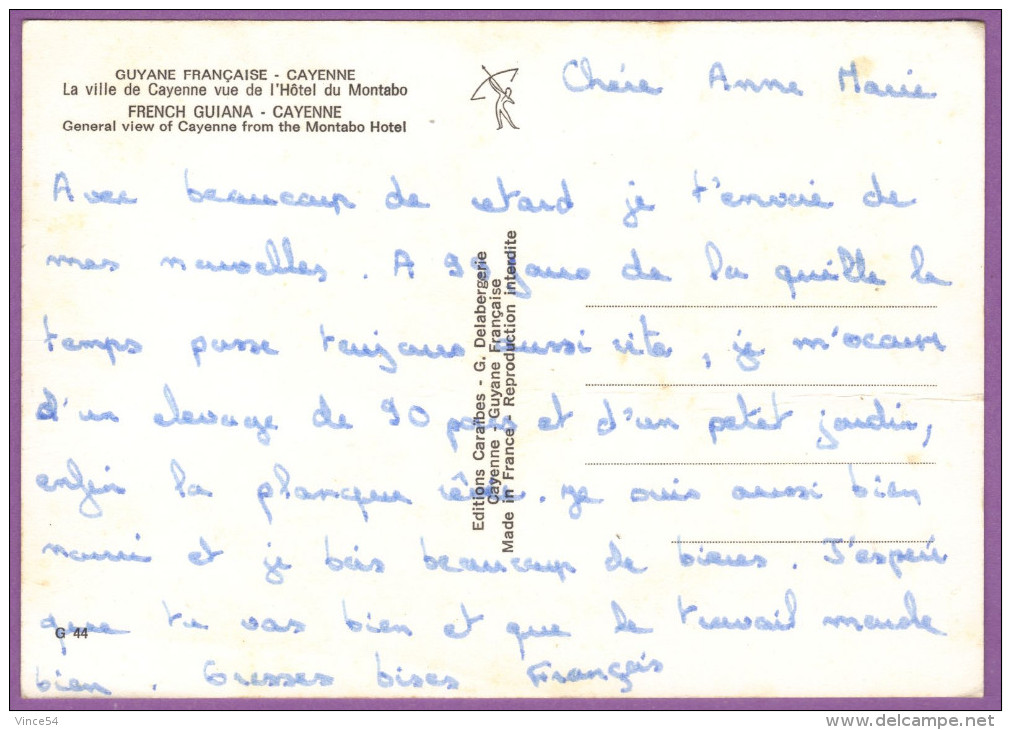 GUYANE FRANÇAISE - CAYENNE
La ville de Cayenne vue de l'Hôtel du Montabo
FRENCH GUIANA - CAYENNE
General view of Cayenne from the Montabo Hotel
Chére Anne Marie
Avec beaucoup de retard je t'envoie de
mes nouvelles. A 99 jours de la quille le
temps passe toujours aussi vite, je m'occupe
d'un elevage de 90 porcs et d'un petit jardin,
enfin la planque rêvée. Je suis aussi bien
nourri et je bois beaucoup de bieres. J'espére
que tu vas bien et que le travail marche
bien. Grosses bises François
Editions Caraïbes - G. Delabergerie
Cayenne - Guyane Française
Made in France - Reproduction interdite
G 44
Vince54
delcampe.net